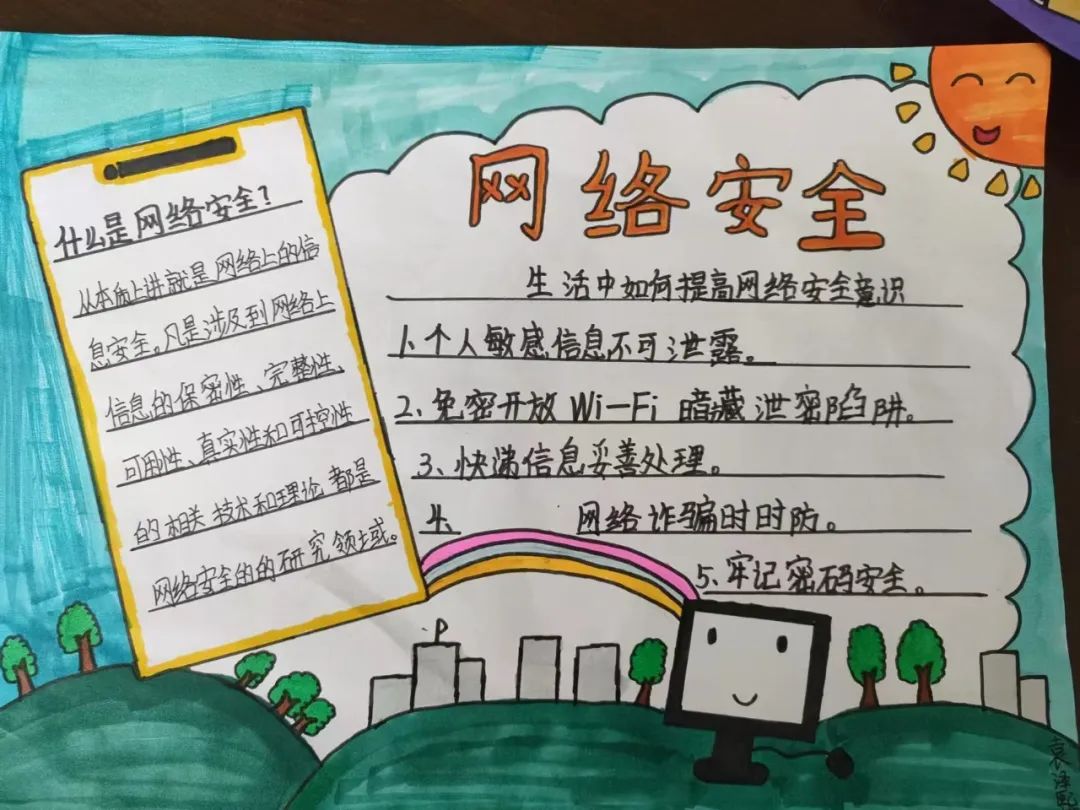 网络安全
什么是网络安全?
从本质上讲就是网络上的信
息安全。凡是涉及到网络上
信息的保密性、完整性、
可用性、真实性和可控性
的相关技术和理论都是
网络安全的的研究领域。
生活中如何提高网络安全意识
1、个人敏感信息不可泄露。
2、免密开放Wi-Fi暗藏泄密陷阱。
3、快递信息妥善处理。
4、网络诈骗时时防。
5、牢记密码安全。
袁泽熙